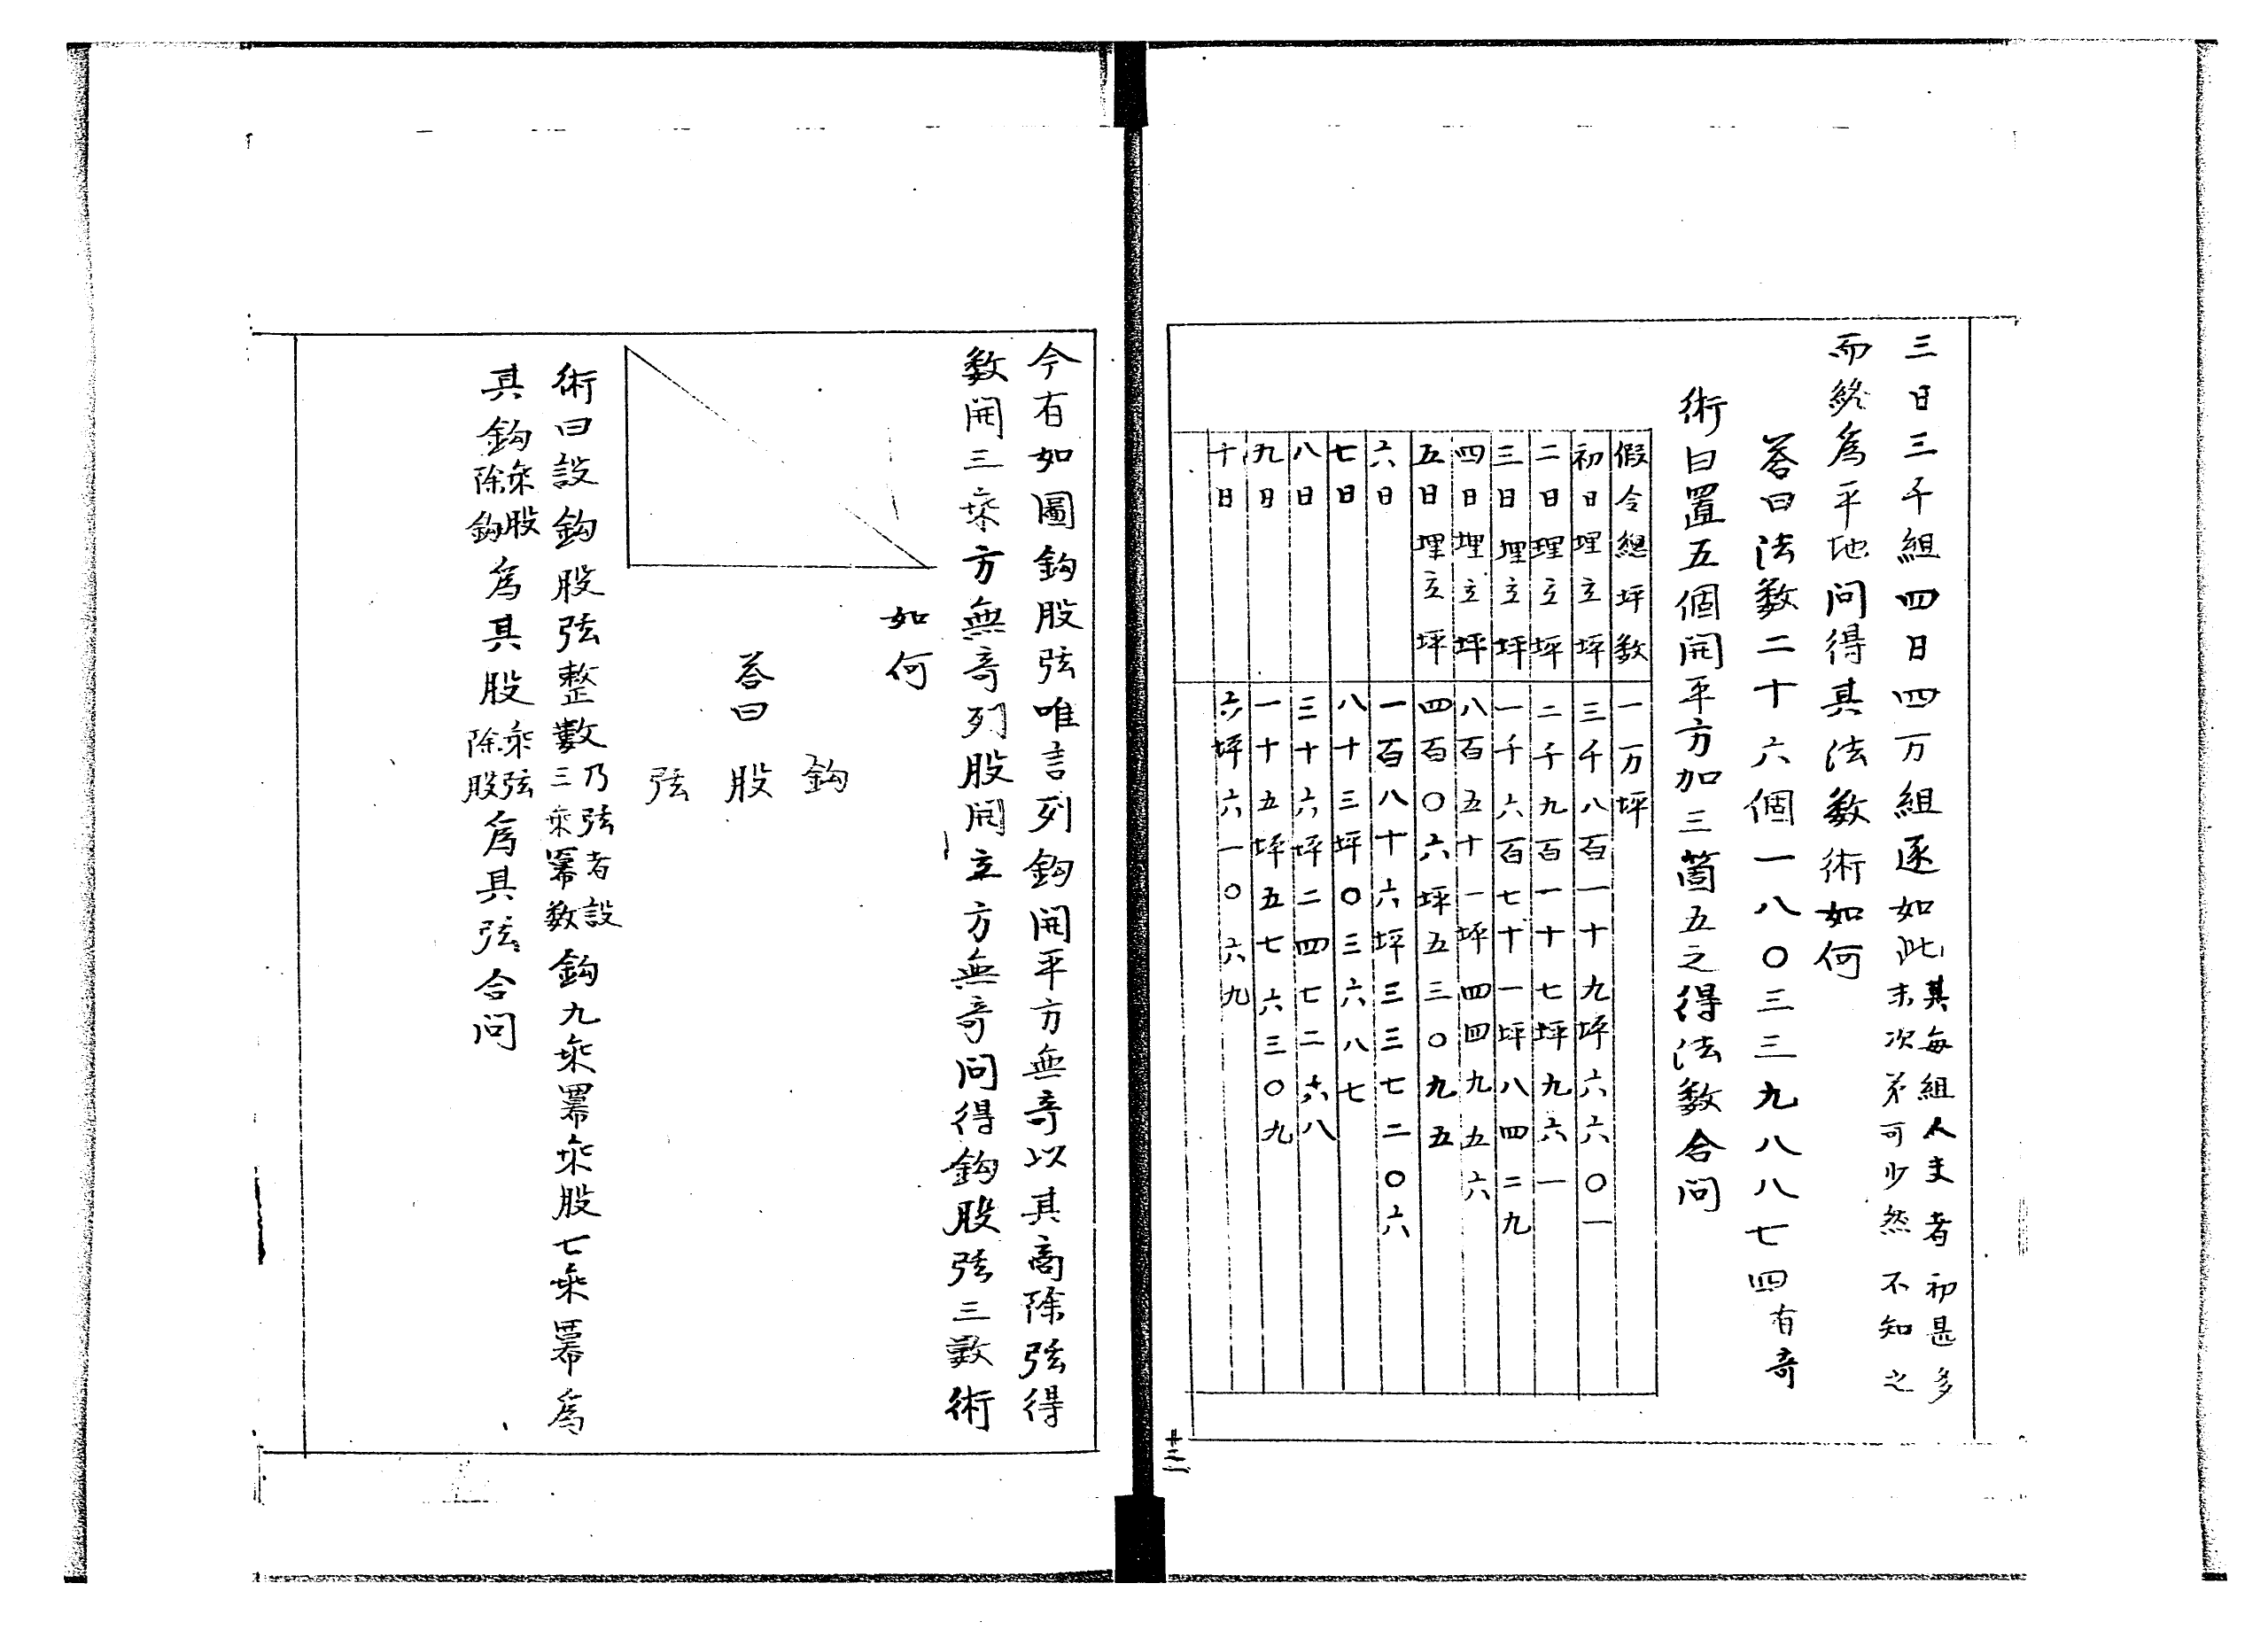 三日三千組四日四万組逐如此其每組人夫者初甚多
末次第可少然不知之
而終為平地問得其法數術如何
荅曰法數二十六個一八〇三三九八八七四有奇
術曰置五個開平方加三箇五之得法数合問
假令總坪数 一万坪
初日埋立坪 三千八百一十九坪六六〇一
二日埋立坪 二千九百一十七坪九六一
三日埋立坪 一千六百七十一坪八四二九
四日埋立坪 八百五十一坪四四九五六
五日埋立坪 四百〇六坪五三〇九五
六日 一百八十六坪三三七二〇六
七日 八十三坪〇三六八七
八日 三十六坪二四七二六八
九日 一十五坪五七六三〇九
十日 六坪六一〇六九
十三
今有如圖鈎股弦唯言列鈎開平方無竒以其商除弦得
數開三乗方無竒列股開立方無竒問得鈎股弦三數術
如何
荅曰
鈎
股
弦
術曰設鈎股弦整數乃弦者設三乗冪数鈎九乗冪乗股七乗冪為
其鈎乗股除鈎為其股乗弦除股為其弦合問